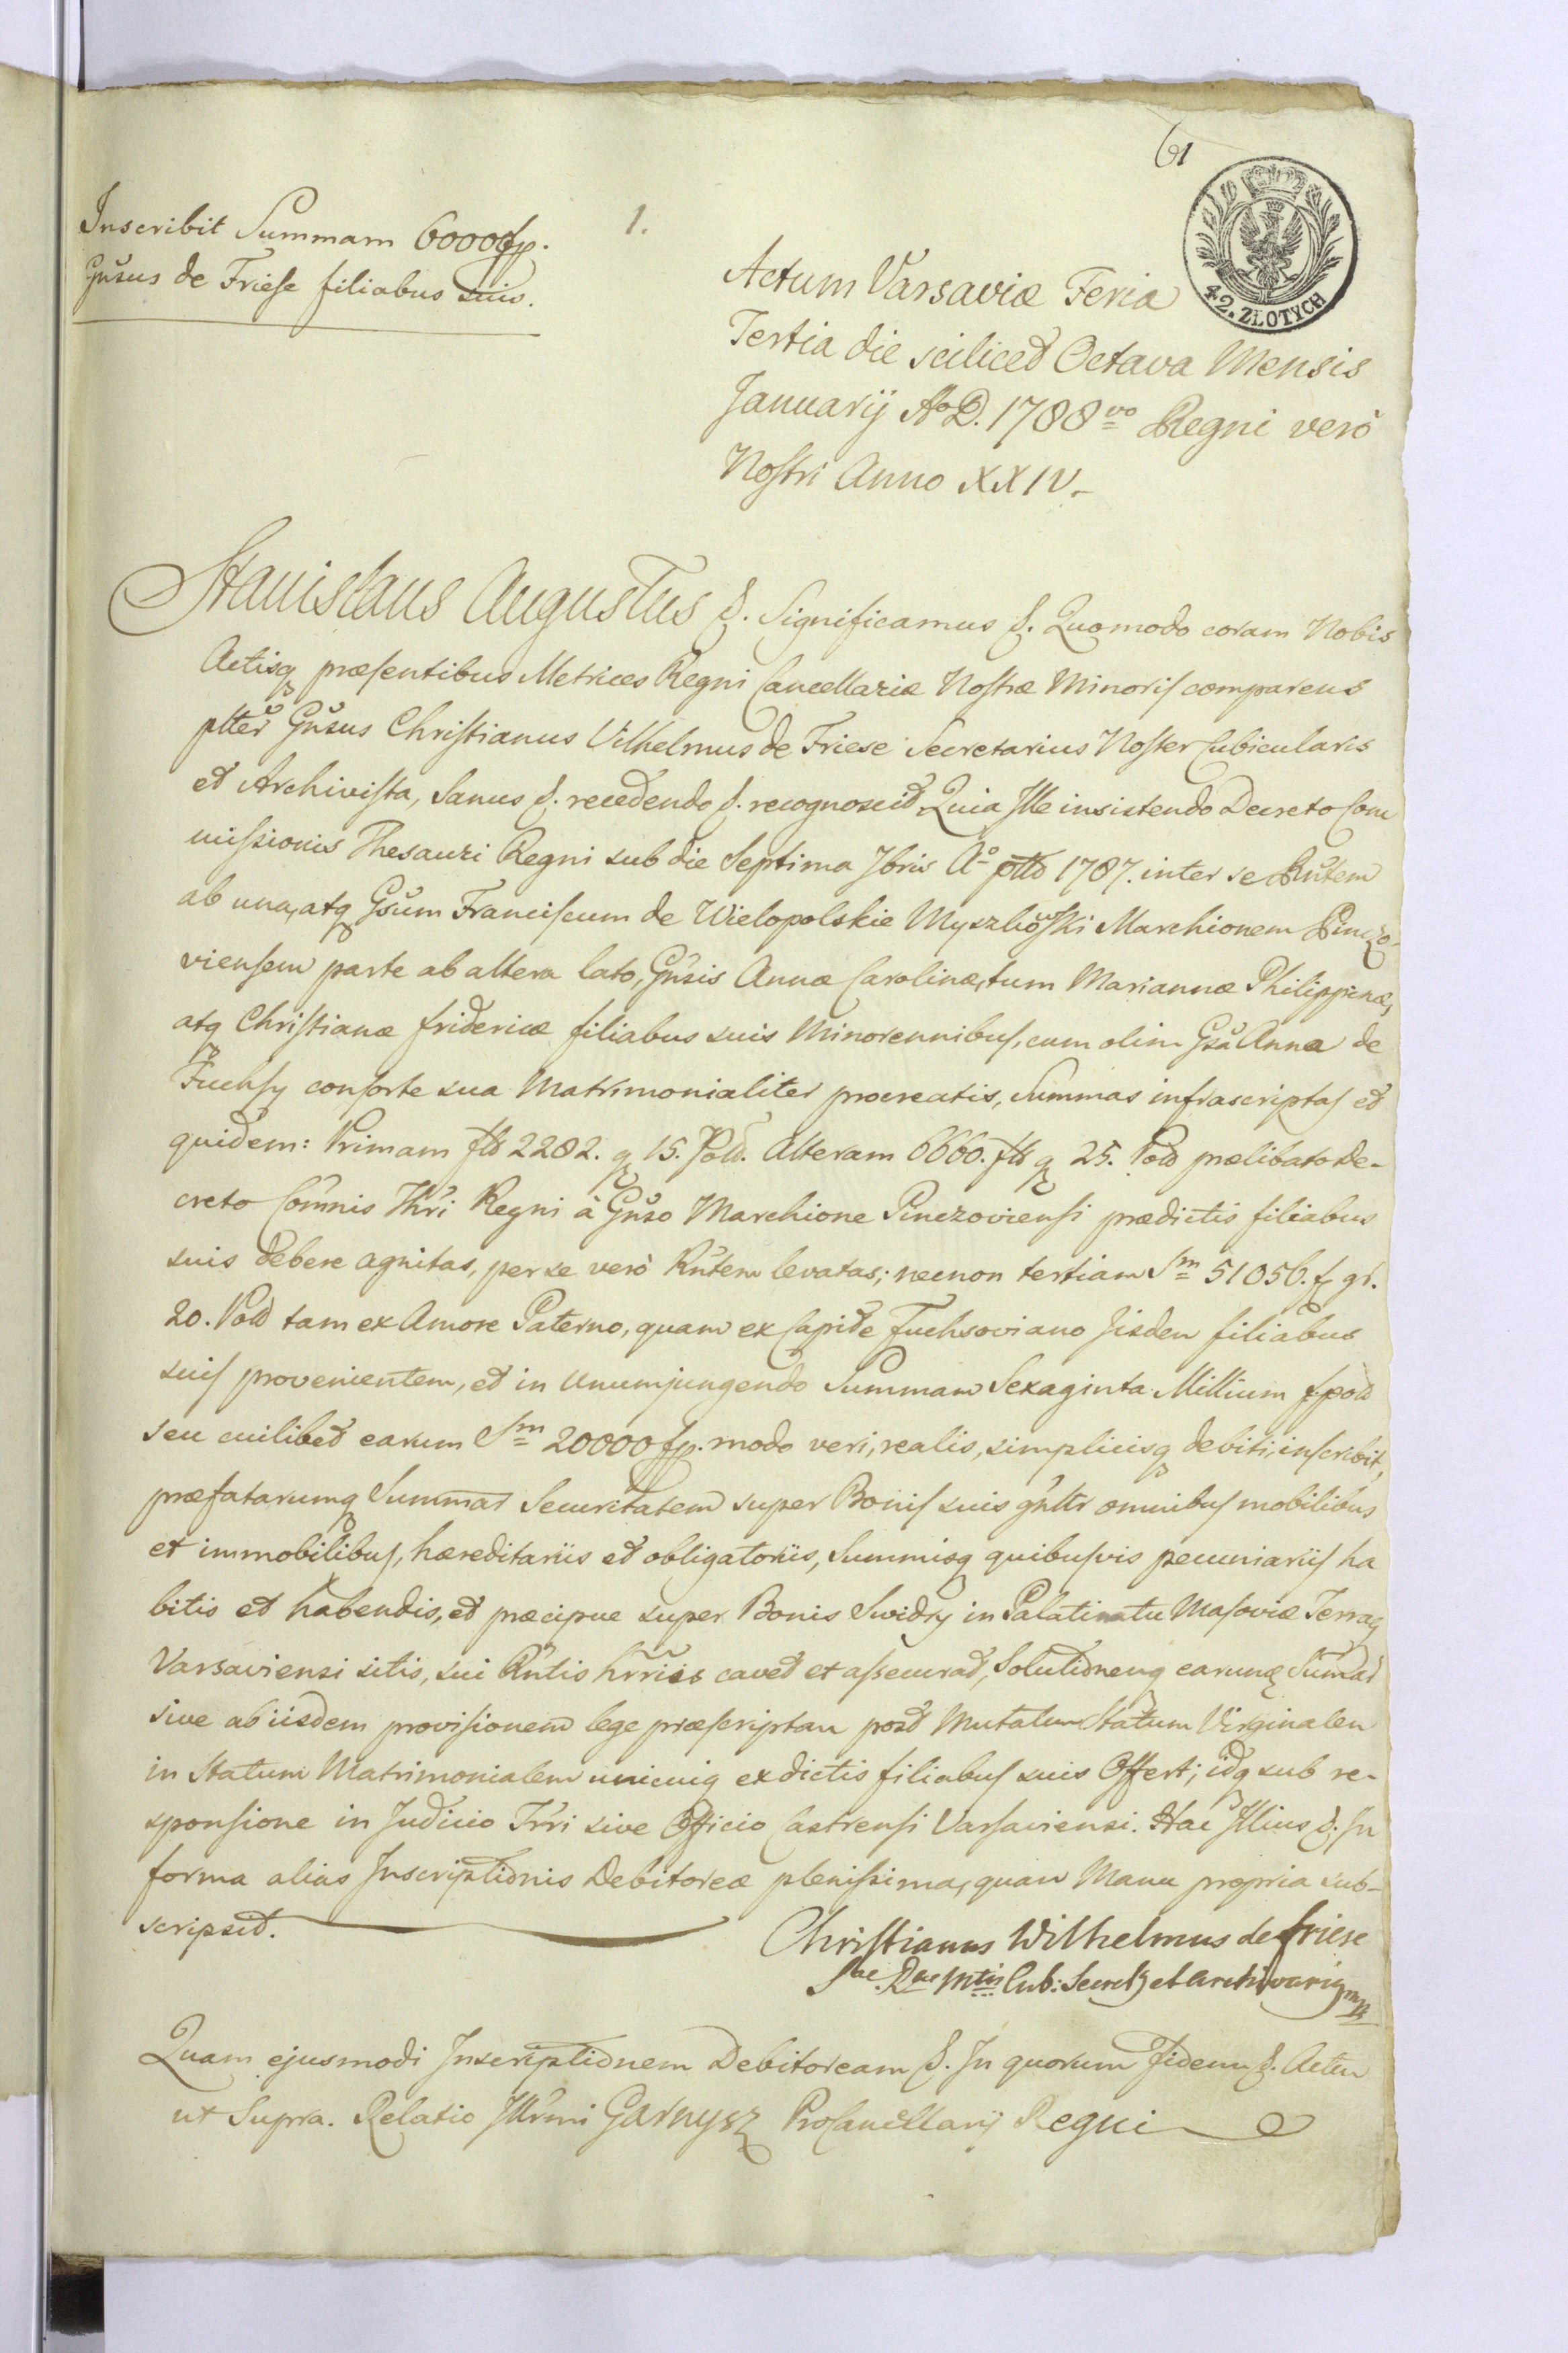 61
Inscribit Summam 60000 fp.
Gn̄sus de Friese filiabus suis.
1.
42. ZŁOTYCH
Actum Varsaviæ Feria
Tertia die scilicet Octava Mensis
Januarij Ao D. 1788vo Regni verò
Nostri Anno XXIV.
Stanislaus Augustus &. Significamus &. Quomodo coram Nobis
Actisq præsentibus Metrices Regni Cancellariæ Nostræ Minoris comparens
plter Gn̄sus Christianus Vilhelmus de Friese Secretarius Noster Cubicularis
et Archivista, Sanus &. recedendo &. recognoscit Quia Ille insistendo Decreto Com
missionis Thesauri Regni sub die Septima Jbris Ao 1787. inter se Rn̄tem
ab una, atq Gsum Franciscum de Wielopolskie Myszkowski Marchionem Pinczo-
viensem parte ab altera lato, Gn̄sis Annæ Carolinæ, tum Mariannæ Philippinæ,
atq Christianæ fridericæ filiabus suis Minorennibus, cum olim Gsa Anna de
Fuchsy consorte sua Matrimonialiter procreatis, Summas infrascriptas et
quidem: Primam fls 2282. g 15. Pold. Alteram 6660. fls g 25. Pold prælibato De-
creto Com̄nis Thr̄i Regni à Gn̄so Marchione Pinczoviensi prædictis filiabus
suis debere agnitas, per se verò Rn̄tem levatas; necnon tertiam Sm 51056. f gr.
20. Pold tam ex Amore Paterno, quam ex Capite Fuchsoviano Jisdem filiabus
suis provenientem, et in unum jungendo Summam Sexaginta Millium f. pold
seu cuilibet earum Sm 20000 fp. modo veri, realis, simplicisq debiti, inscribit,
præfatarumq Summar Securitatem super Bonis suis gn̄ltr omnibus mobilibus
et immobilibus, hæreditariis et obligatoriis, Summisq quibusvis pecuniariis ha
bitis et habendis, et præcipue super Bonis Swidry in Palatinatu Masoviæ Terraq
Varsaviensi sitis, sui Rn̄tis hr̄riis cavet et assecurat, Solutionemq earumq Sum̄ar
sive ab iisdem provisionem lege præscriptam post Mutatum Statum Virginalem
in Statum Matrimonialem unicuiq ex dictis filiabus suis Offert; idq sub re-
sponsione in Judicio Tr̄ri sive Officio Castrensi Varsaviensi. Hac Illius &. In
forma alias Inscriptionis Debitoreæ plenissima, quam Manu propria sub-
scripsit.
Christianus Wilhelmus de friese
Sae Rae Mtis Cub: Secret et Archivariq mp
Quam ejusmodi Inscriptionem Debitoream &. In quorum Fidem &. Actu
ut Supra. Relatio Illr̄mi Garnysz ProCancellarij Regni